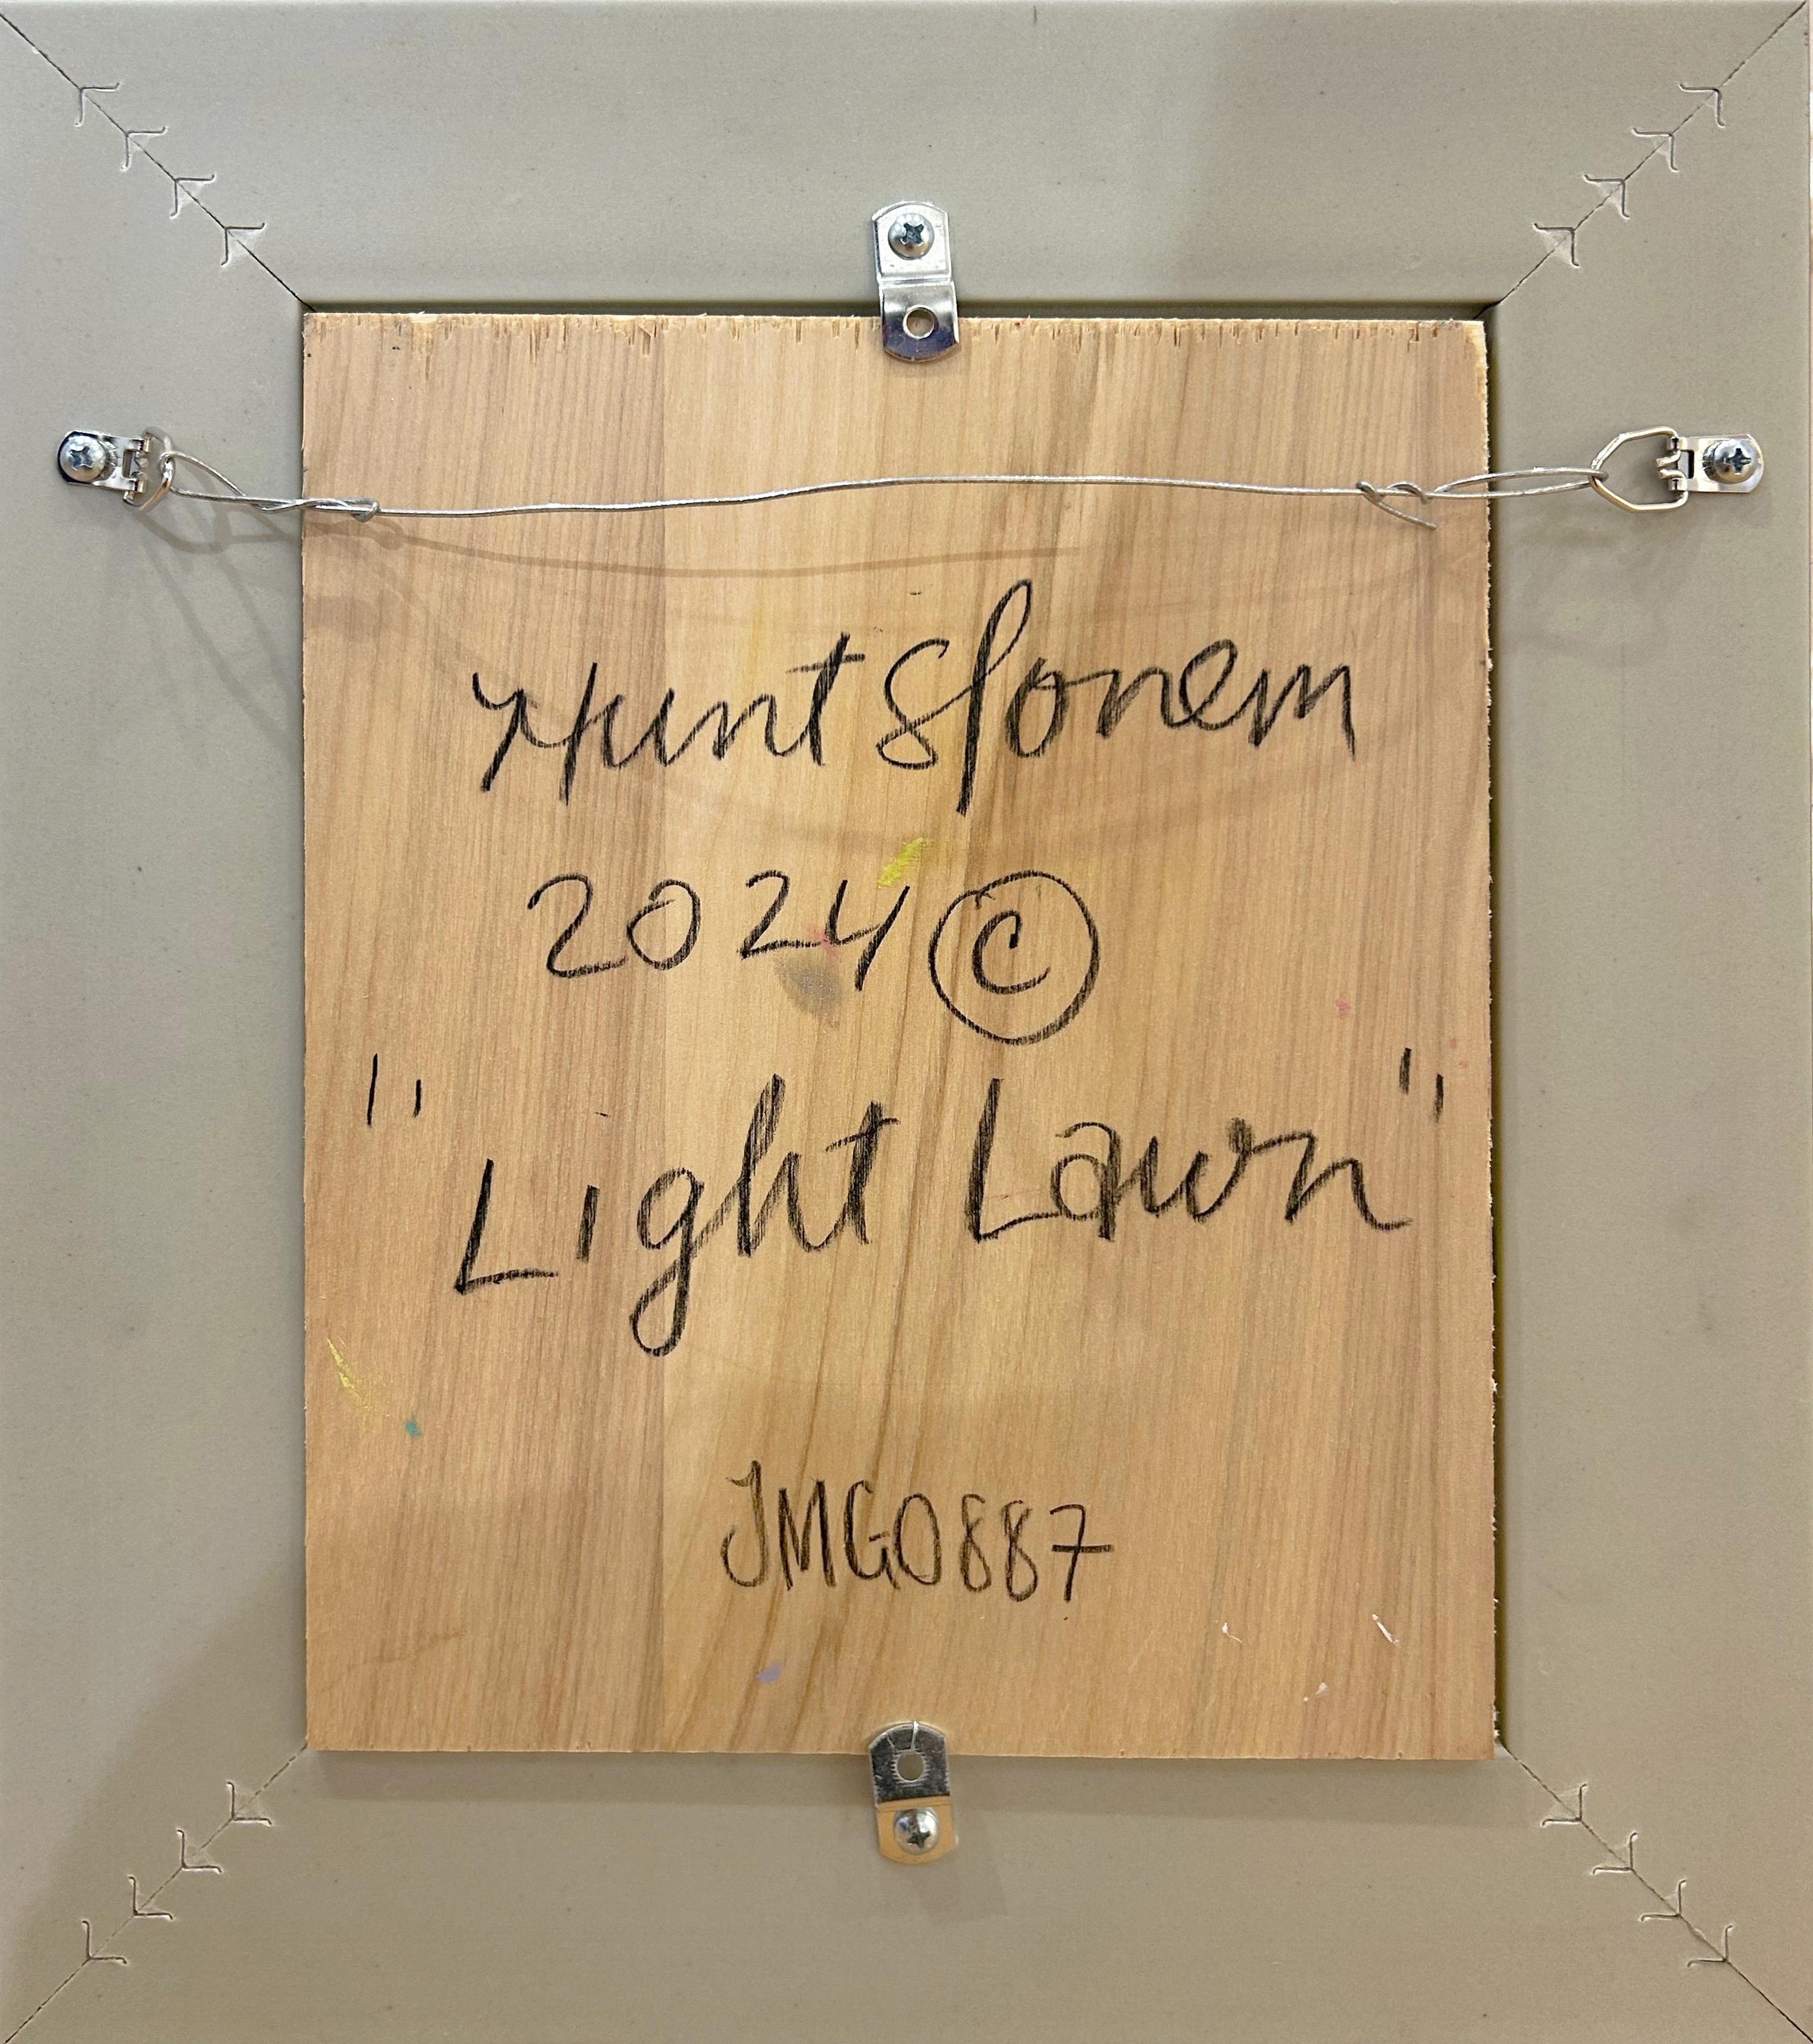 Hunt Slonem
2024 ©
"Light Lawn"
JMG0887